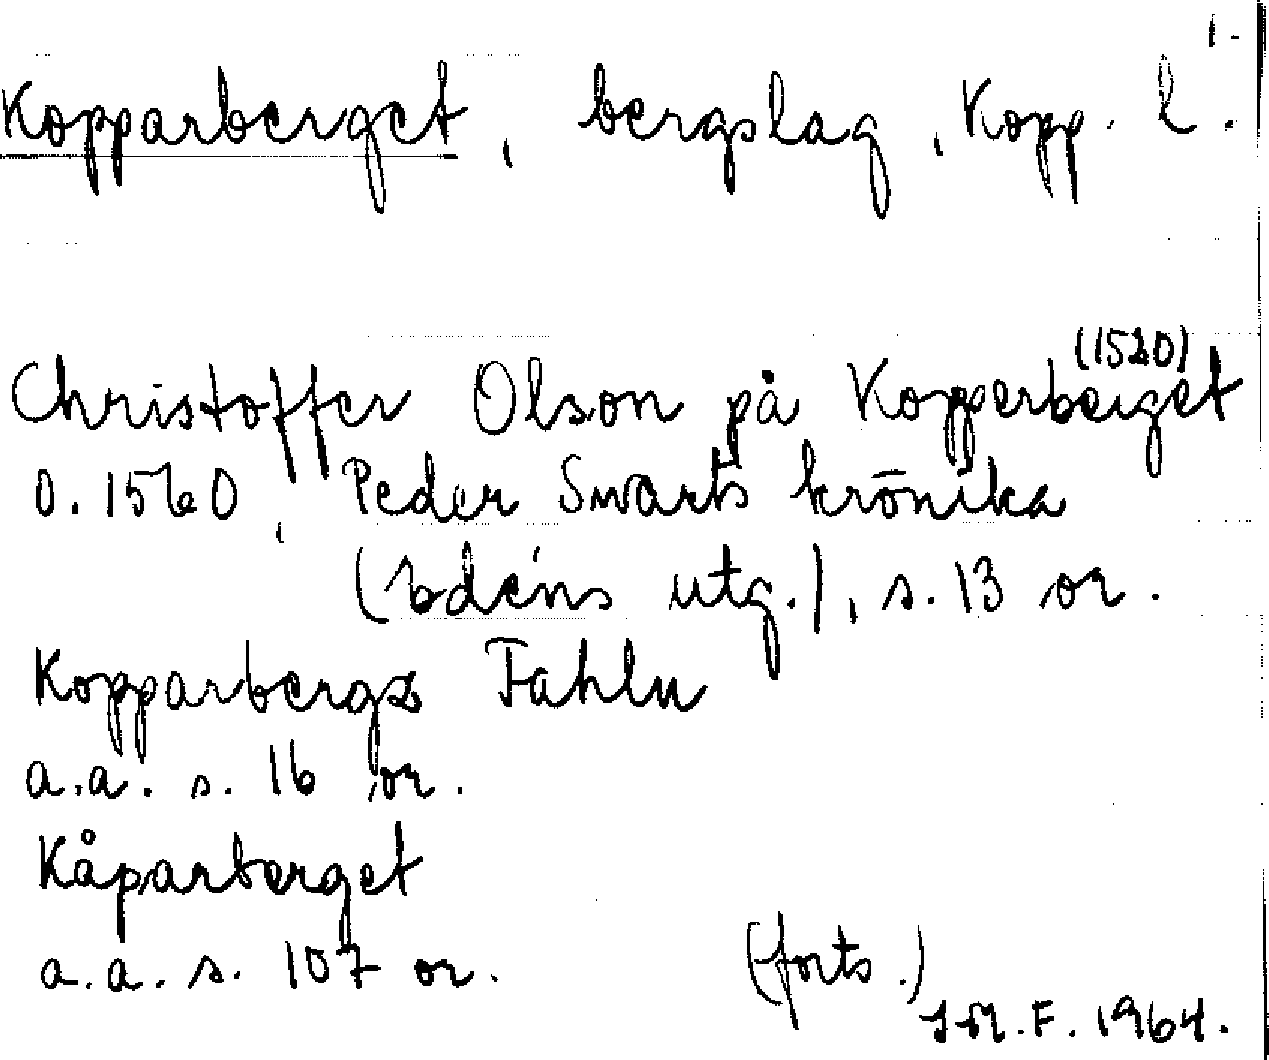 1.
Kopparberget, bergslag, Kopp. l.
(1520)
Christoffer Olson på Kopperberget
o. 1560, Peder Swarts krönika
(Edéns utg.), s. 13 or.
Kopparbergs Fahlu
a.a. s. 16 or.
Kåparberget
a.a. s. 107 or.
(forts.)
F. 1964.